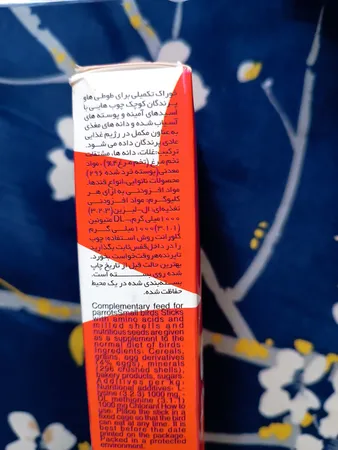 خوراک تکمیلی برای طوطی ها و
پرندگان کوچک چوب هایی با
اسیدهای آمینه و پوسته های
آسیاب شده و دانه های مغذی
به عنوان مکمل در رژیم غذایی
عادی پرندگان داده می شود.
ترکیب:غلات، دانه ها، مشتقات
تخم مرغ (تخم مرغ ۴٪)، مواد
معدنی(پوسته خرد شده ۲۹٪)
محصولات نانوایی، انواع قندها.
مواد افزودنی به ازای هر
کیلوگرم: مواد افزودنی
تغذیه‌ای: ال- لیزین(۳.۲.۳)
۱۰۰۰میلی گرم- DL متیونین
(۳.۱.۱)۱۰۰۰میلی گرم
روش استفاده: چوب
را در داخل قفس ثابت بگذارید
تا پرنده هروقت خواست بخورد.
بهترین حالت قبل از تاریخ چاپ
شده روی بسته است.
بسته‌بندی شده در یک محیط
حفاظت شده.
Complementary feed for
parrotsSmall birds Sticks
with amino acids and
milled shells and
nutritious seeds are given
as a supplement to the
normal diet of birds.
Ingredients: Cereals,
grains, egg derivatives
(4% eggs), minerals
(29% crushed shells),
bakery products, sugars.
Additives per kg:
Nutritional additives: L-
lysine (3.2.3) 1000 mg -
DL methionine (3.1.1)
1000 mg How to
use: Place the stick in a
fixed cage so that the bird
can eat at any time. It is
best before the date
printed on the package.
Packed in a protected
environment.